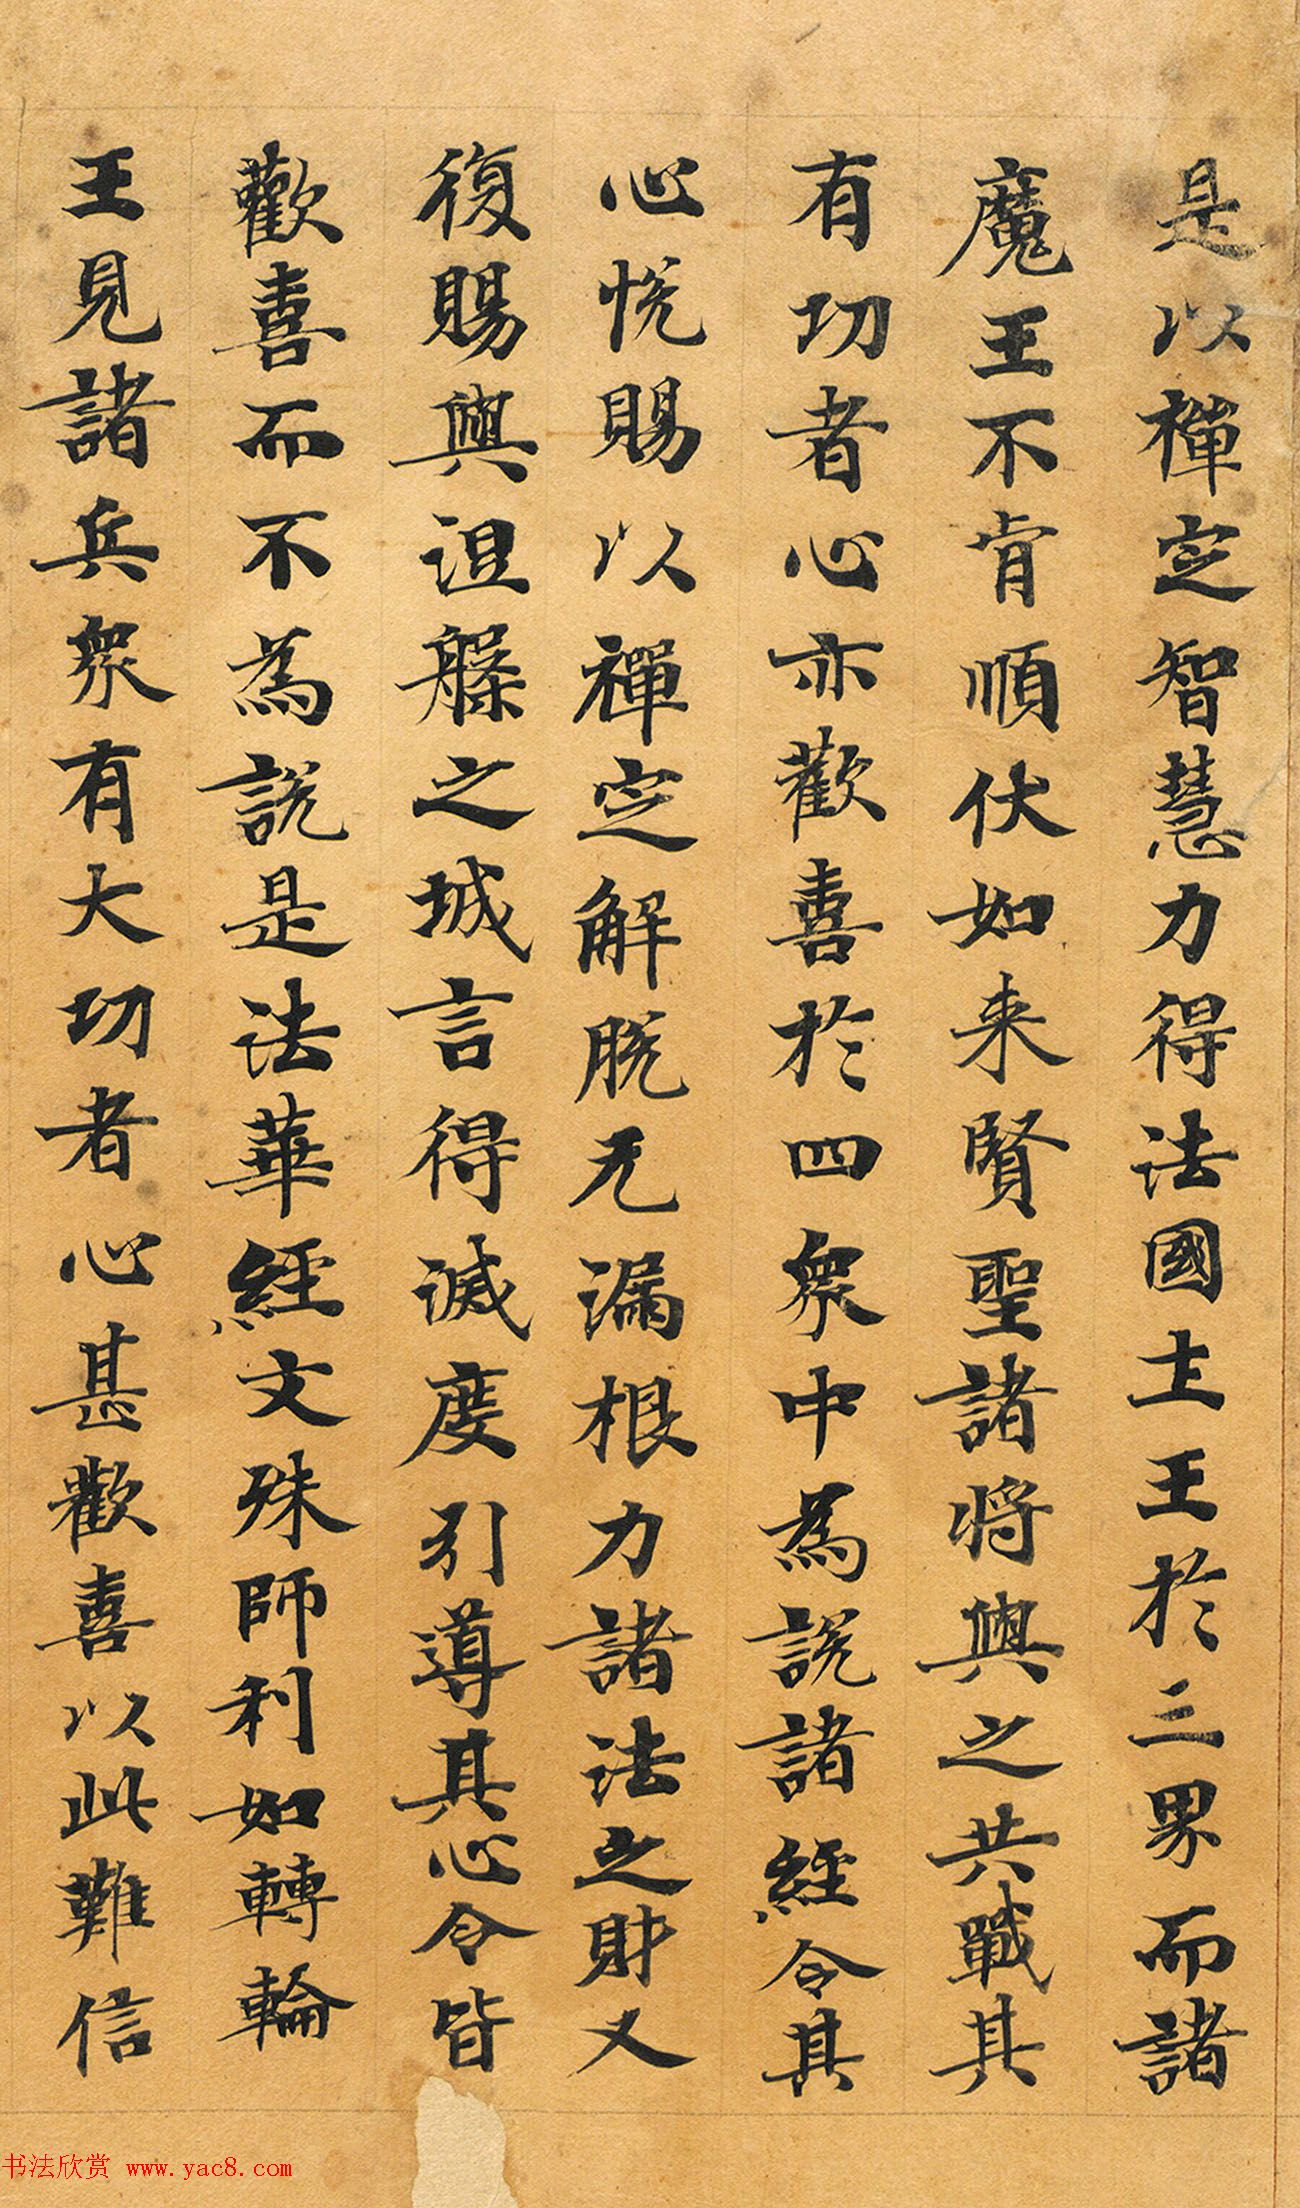 是以禪定智慧力得法國土王於三界而諸
魔王不肯順伏如来賢聖諸將與之共戰其
有功者心亦歡喜於四衆中為說諸經令其
心悅賜以禪定解脫无漏根力諸法之財又
復賜與涅槃之城言得滅度引導其心令皆
歡喜而不為說是法華經文殊師利如轉輪
王見諸兵衆有大功者心甚歡喜以此難信
书法欣赏 www.yac8.com